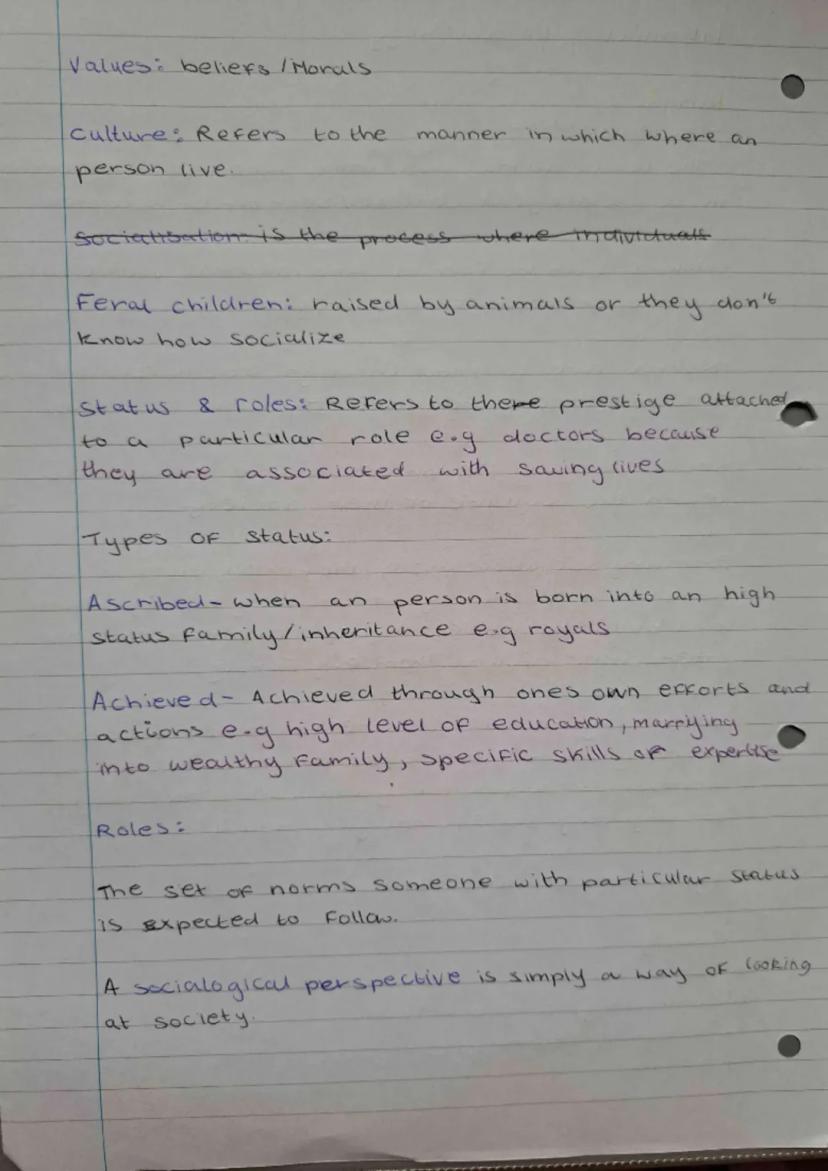 Values: beliefs/Morals
Culture: Refers to the manner in which where an
person live.
Socialisation is the process where individuals
Feral children: raised by animals or they don't
know how socialize
Status & roles: Refers to there prestige attached
to a particular role e.g doctors because
they are associated with saving lives
Types of status:
Ascribed- when an person is born into an high
status family/inheritance e.g royals
Achieved- Achieved through ones own efforts and
actions e.g high level of education, marrying
into wealthy family, specific skills or expertise
Roles:
The set of norms someone with particular status
is expected to follow.
A socialogical perspective is simply a way of looking
at society.